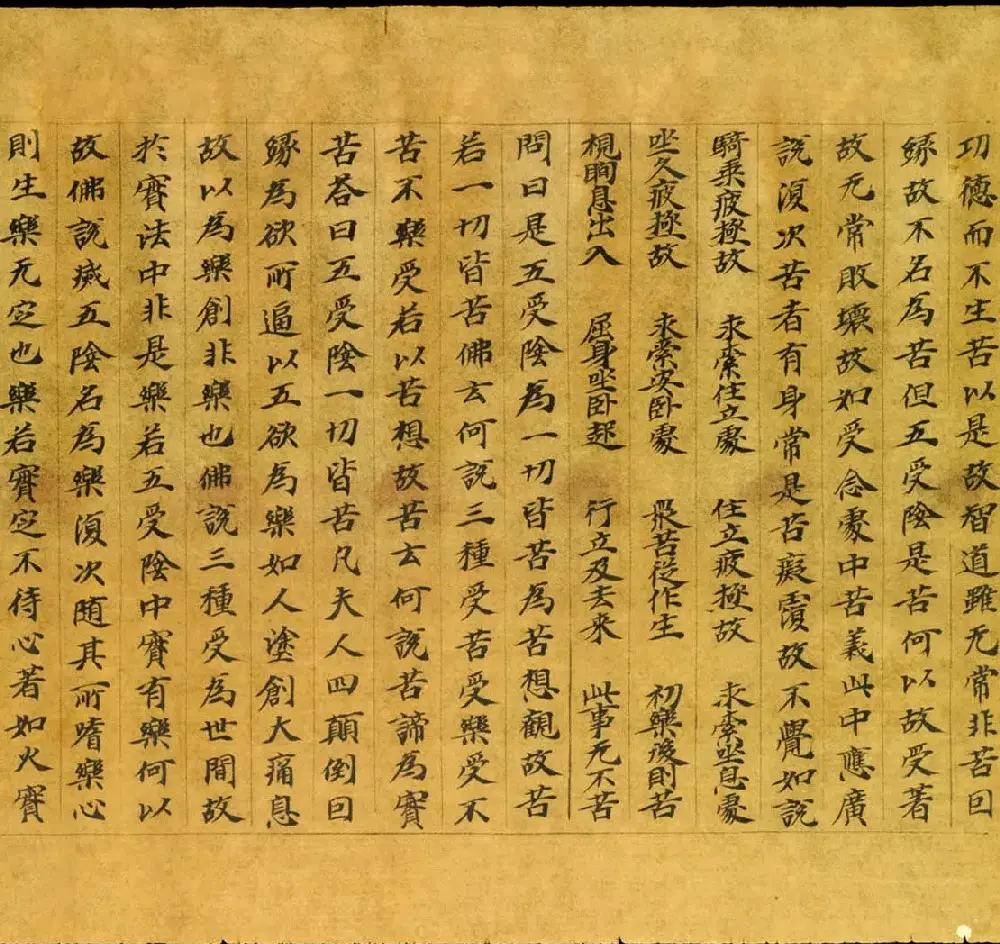 功德而不生苦以是故智道雖无常非苦回
緣故不名為苦但五受陰是苦何以故受著
故无常敗壞故如受念處中苦義此中應廣
說復次苦者有身常是苦癡覆故不覺如說
騎乘疲極故 求索住立處 住立疲極故 求索坐息處
坐久疲極故 求索安臥處 眾苦從作生 初樂後則苦
視瞬息出入 屈身坐臥起 行立及去來 此事无不苦
問曰是五受陰為一切皆苦為苦想觀故苦
若一切皆苦佛云何說三種受苦受樂受不
苦不樂受若以苦想故苦云何說苦諦為實
苦荅曰五受陰一切皆苦凡夫人四顛倒回
緣為欲所逼以五欲為樂如人塗創大痛息
故以為樂創非樂也佛說三種受為世間故
於實法中非是樂若五受陰中實有樂何以
故佛說滅五陰名為樂復次随其所嗜樂心
則生樂无定也樂若實定不待心著如火實